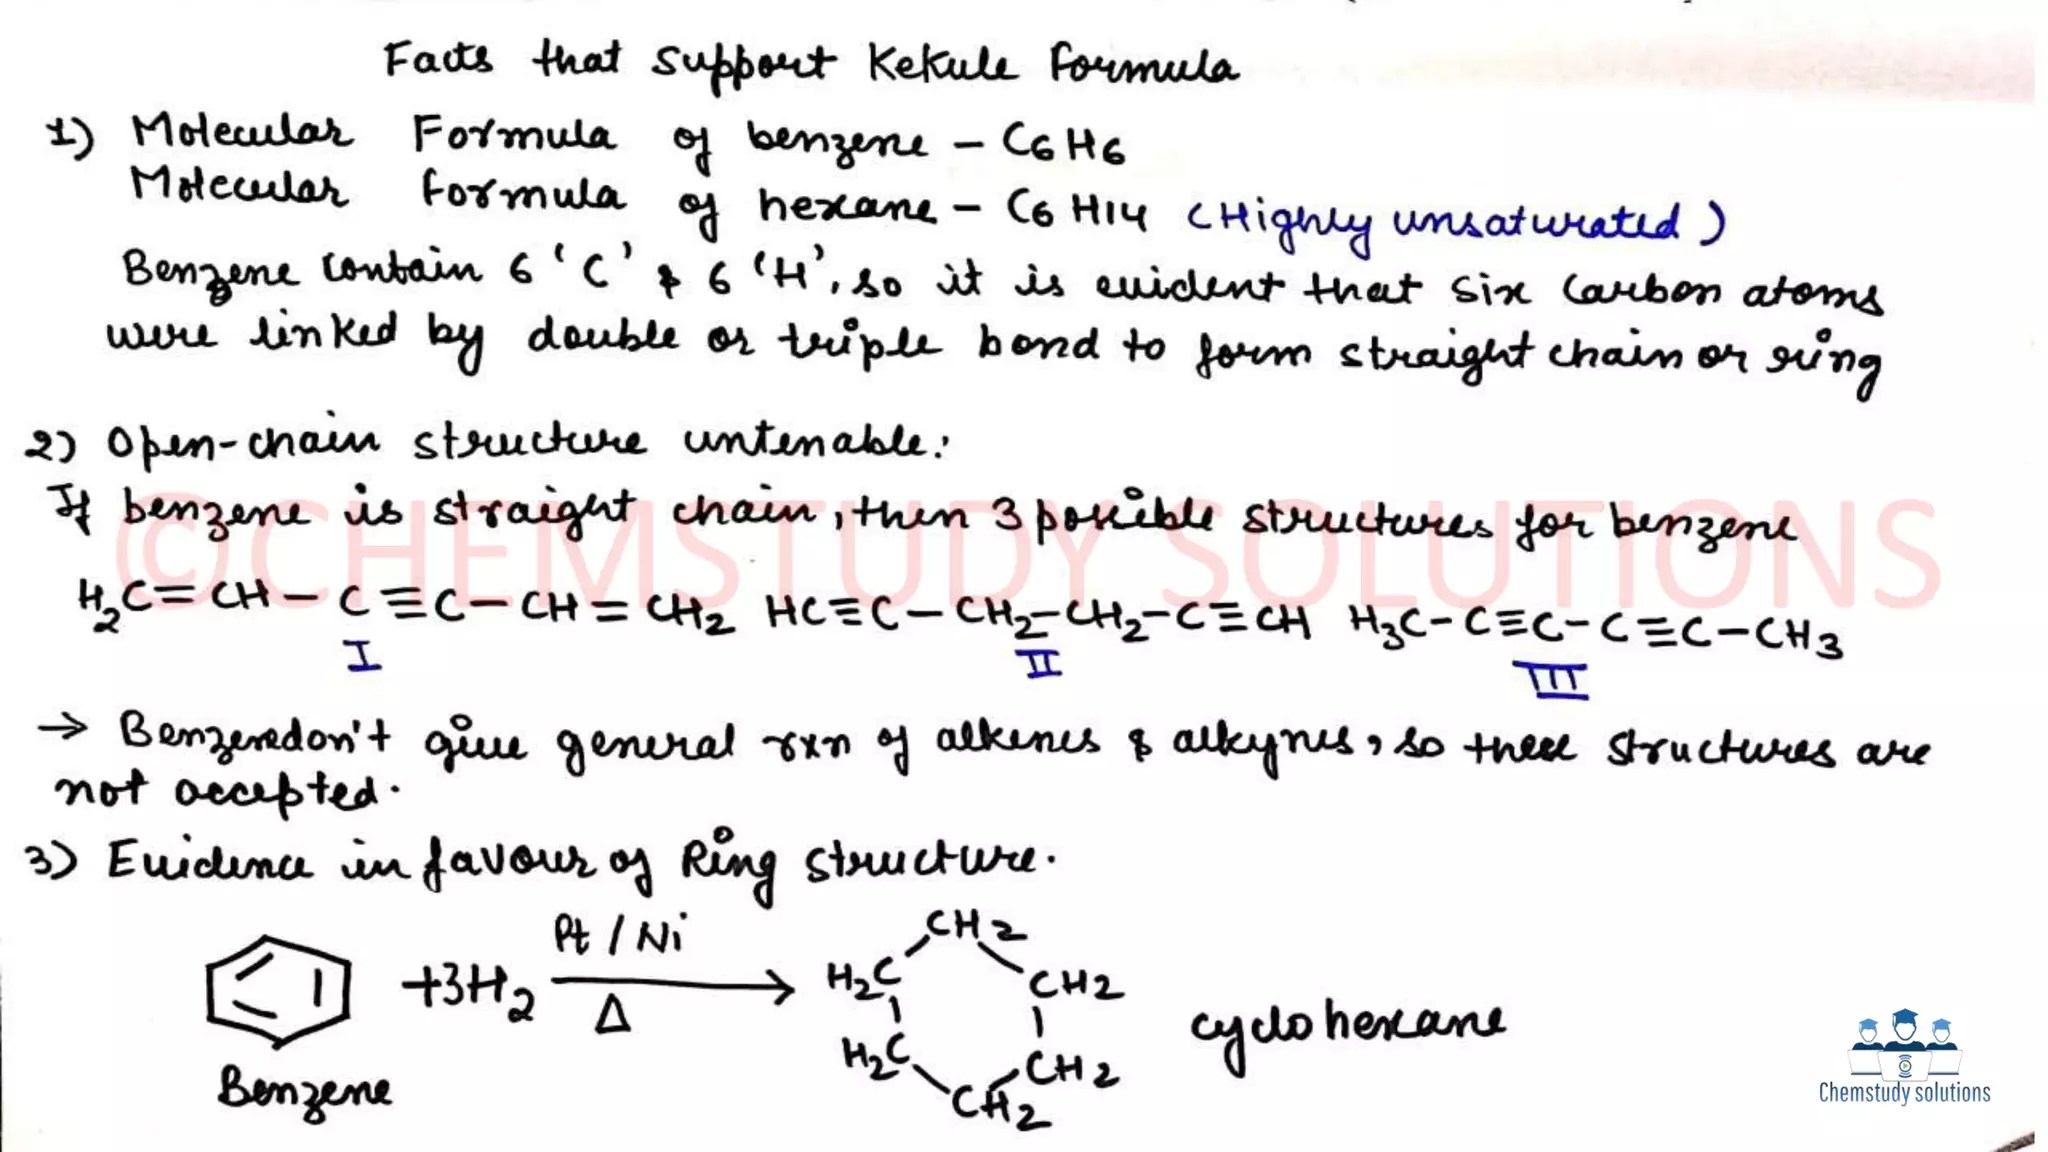 Facts that support Kekule formula
1) Molecular Formula of benzene – C6H6
Molecular formula of hexane – C6H14 (Highly unsaturated)
Benzene contain 6 'C' & 6 'H', so it is evident that six carbon atoms
were linked by double or triple bond to form straight chain or ring
2) Open-chain structure untenable:
If benzene is straight chain, then 3 possible structures for benzene
©CHEMSTUDY SOLUTIONS
H2C=CH–C≡C–CH=CH2 HC≡C–CH2–CH2–C≡CH H3C–C≡C–C≡C–CH3
I II III
→ Benzene don't give general rxn of alkenes & alkynes, so these structures are
not accepted.
3) Evidence in favour of Ring structure.
Pt / Ni
+3H2
Δ
CH2
H2C CH2
H2C CH2
CH2
cyclohexane
Benzene
Chemstudy solutions